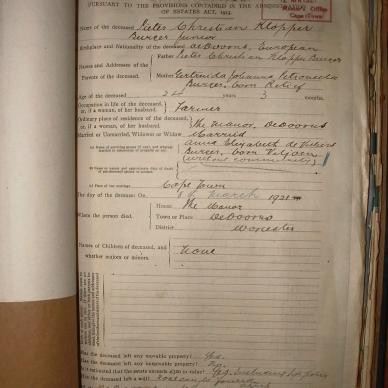 PURSUANT TO THE PROVISIONS CONTAINED IN THE ADMINISTRATION
OF ESTATES ACT, 1913.
Master's Office
Cape Town
Name of the deceased Pieter Christian Klopper
Burger junior
Birthplace and Nationality of the deceased deDoorns, European
Names and Addresses of the Parents of the deceased
Father Pieter Christian Klopper Burger
Mother Gertruida Johanna Petronella
Burger, born Retief
Age of the deceased 24 years 3 months.
Occupation in life of the deceased, or, if a woman, of her husband. Farmer
Ordinary place of residence of the deceased, or, if a woman, of her husband. The Manor, deDoorns
Married or Unmarried, Widower or Widow Married
Anna Elizabeth de Villiers
Burger, born Viljoen
(without community)
(c) Place of last marriage Cape Town
The day of the decease: On 8th March 1921
Where the person died.
House The Manor
Town or Place DeDoorns
District Worcester
Names of Children of deceased, and whether majors or minors. None
Has the deceased left any movable property? Yes.
Has the deceased left any immovable property?
Is it estimated that the estate exceeds £300 in value? Yes.
Has the deceased left a will?